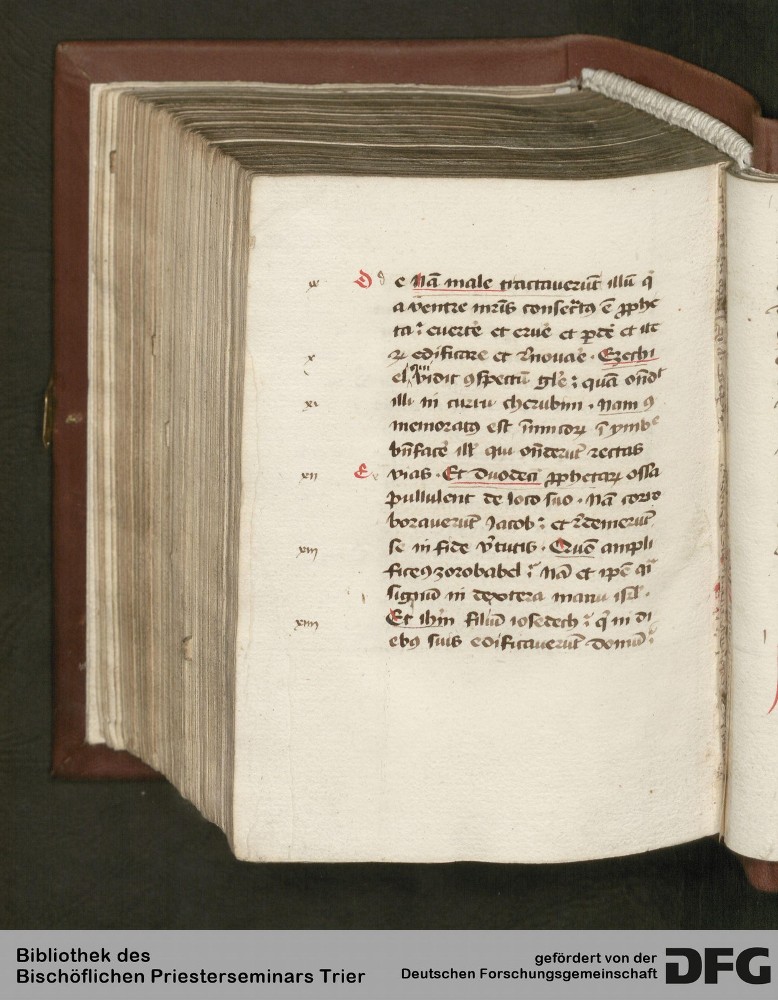 ix D d e Nā male tractaverūt illū q
a ventre mr̄is consec̄tꝯ ē ꝓphe
ta : euerte et erue et pde et ite
x ꝝ edificare et r̄novae . Ezechi
el qui vidit ꝯspectū gl̄e : quā ōnd
xi illi in curru cherubim . Nam ꝯ
memoratꝯ est īimicoꝝ ī ymb
bn̄facē ill qui ōnderūt rectas
xii E vias . Et duodeci ꝓphetaꝝ ossa
pullulent de loco suo . Nā corro
boraverūt Jacob : et r̄demerūt
xiii se in fide v̄tutis . Quō ampli
ficeꝯ zorobabel : Nā et ipē qi
signū in dextera manu isrl .
xiiii Et ihm filiū iosedech : q̄ in di
ebꝯ suis edificaverūt domū :
Bibliothek des
Bischöflichen Priesterseminars Trier
gefördert von der
Deutschen Forschungsgemeinschaft DFG